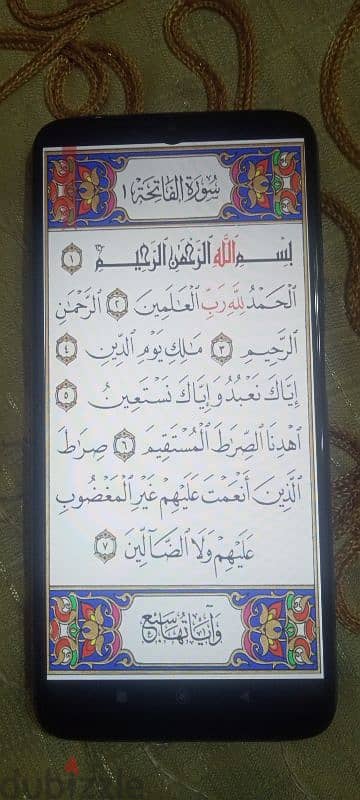 سُورَةُ الفَاتِحَةِ ١
بِسْمِ ٱللَّهِ ٱلرَّحْمَٰنِ ٱلرَّحِيمِ ١
ٱلْحَمْدُ لِلَّهِ رَبِّ ٱلْعَٰلَمِينَ ٢ ٱلرَّحْمَٰنِ
ٱلرَّحِيمِ ٣ مَٰلِكِ يَوْمِ ٱلدِّينِ ٤
إِيَّاكَ نَعْبُدُ وَإِيَّاكَ نَسْتَعِينُ ٥
ٱهْدِنَا ٱلصِّرَٰطَ ٱلْمُسْتَقِيمَ ٦ صِرَٰطَ
ٱلَّذِينَ أَنْعَمْتَ عَلَيْهِمْ غَيْرِ ٱلْمَغْضُوبِ
عَلَيْهِمْ وَلَا ٱلضَّآلِّينَ ٧
وَآيَاتُهَا سَبْعٌ
dubizzle